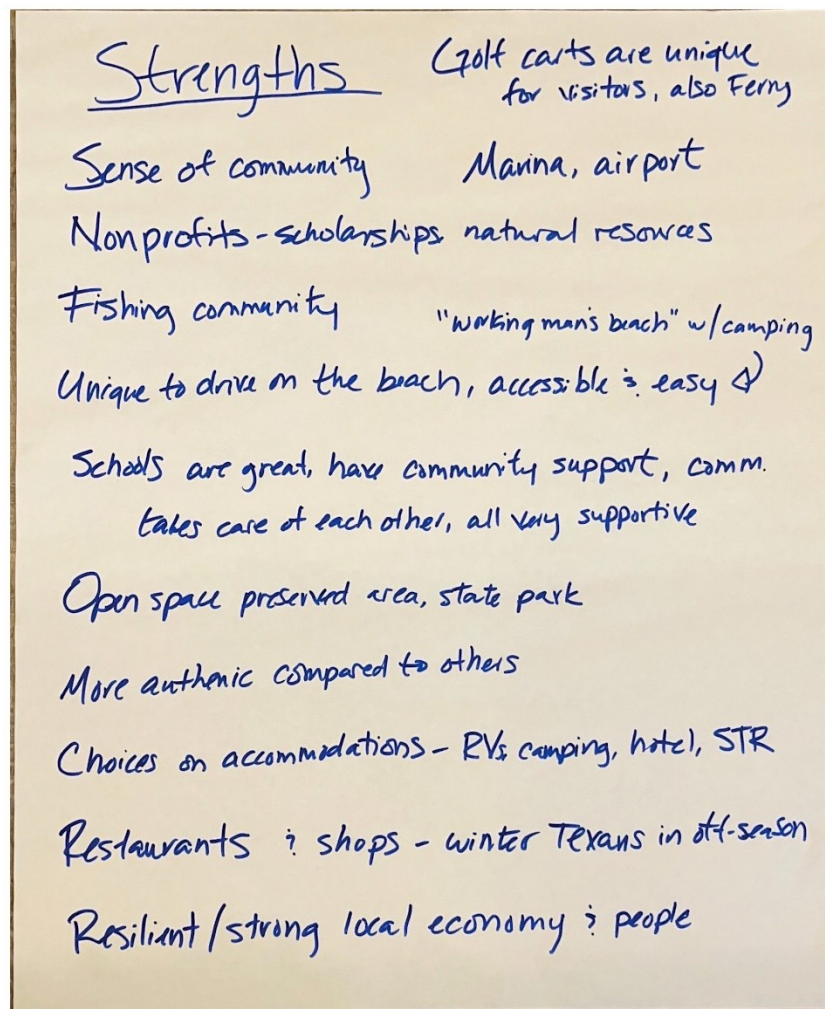 Strengths
Golf carts are unique
for visitors, also Ferry
Sense of community
Marina, airport
Nonprofits - scholarships, natural resources
Fishing community
"working man's beach" w/camping
Unique to drive on the beach, accessible & easy
Schools are great, have community support, comm.
takes care of each other, all very supportive
Open space preserved area, state park
More authenic compared to others
Choices on accommodations - RVs, camping, hotel, STR
Restaurants & shops - winter Texans in off-season
Resilient/strong local economy & people